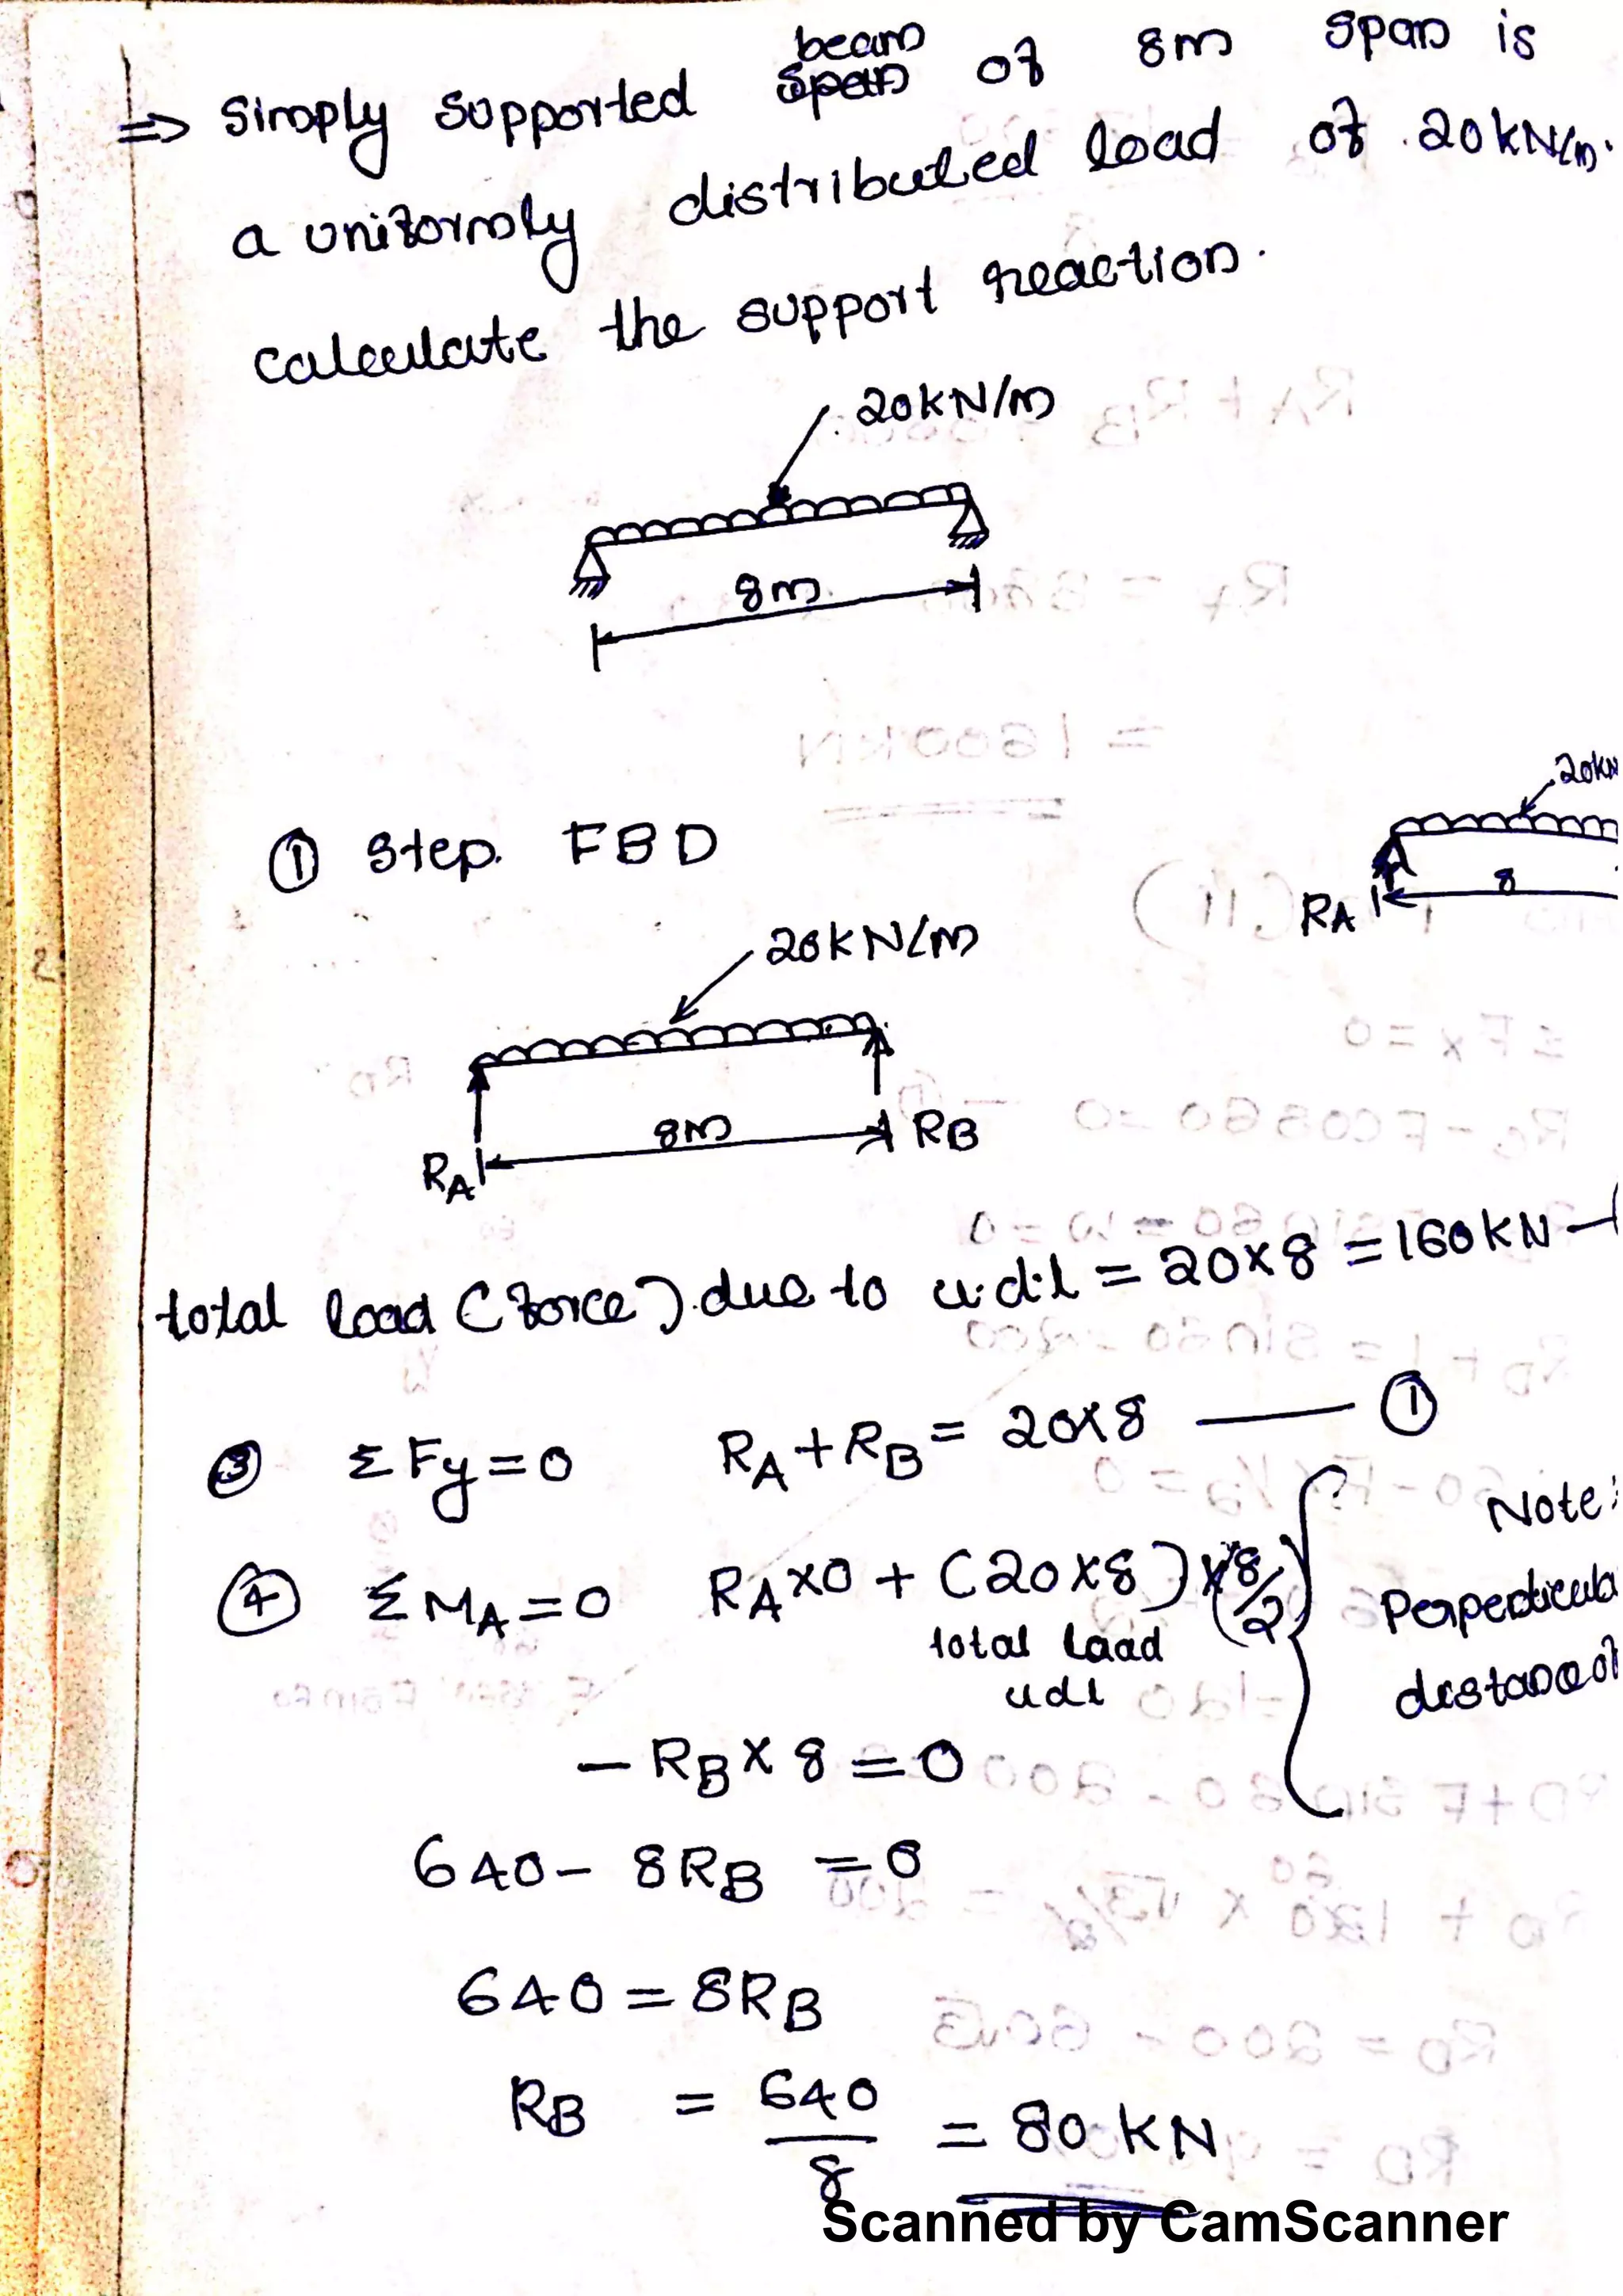 ⇒ Simply supported beam of 8m span is
a uniformly distributed load of 20kN/m.
calculate the support reaction.
20kN/m
8m
① Step. FBD
20kN
RA
8
20kN/m
8m
RA
RB
total load (force) due to u.d.l = 20×8 = 160kN
③ ΣFy=0 RA+RB = 20×8 —— ①
④ ΣMA=0 RA×0 + (20×8)×(8/2)
total load
udl
Note:
Perpedicula
distance of
- RB×8=0
640- 8RB =0
640=8RB
RB = 640/8 = 80 KN
Scanned by CamScanner